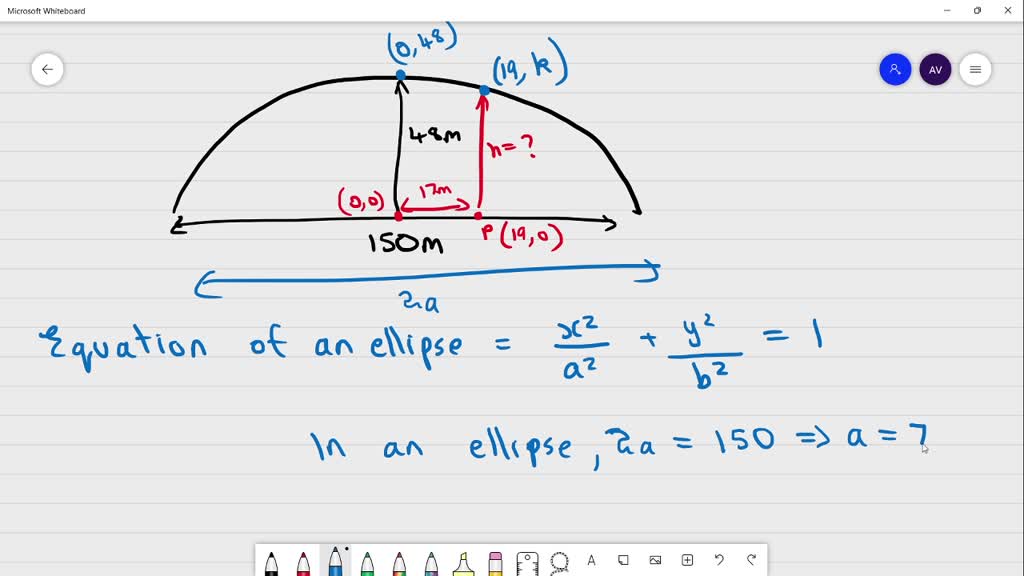 Microsoft Whiteboard
(0,48)
(19, k)
AV
48m
h=?
17m
(0,0)
P(19,0)
150m
2a
Equation of an ellipse = x²/a² + y²/b² = 1
In an ellipse, 2a = 150 => a = 7
A